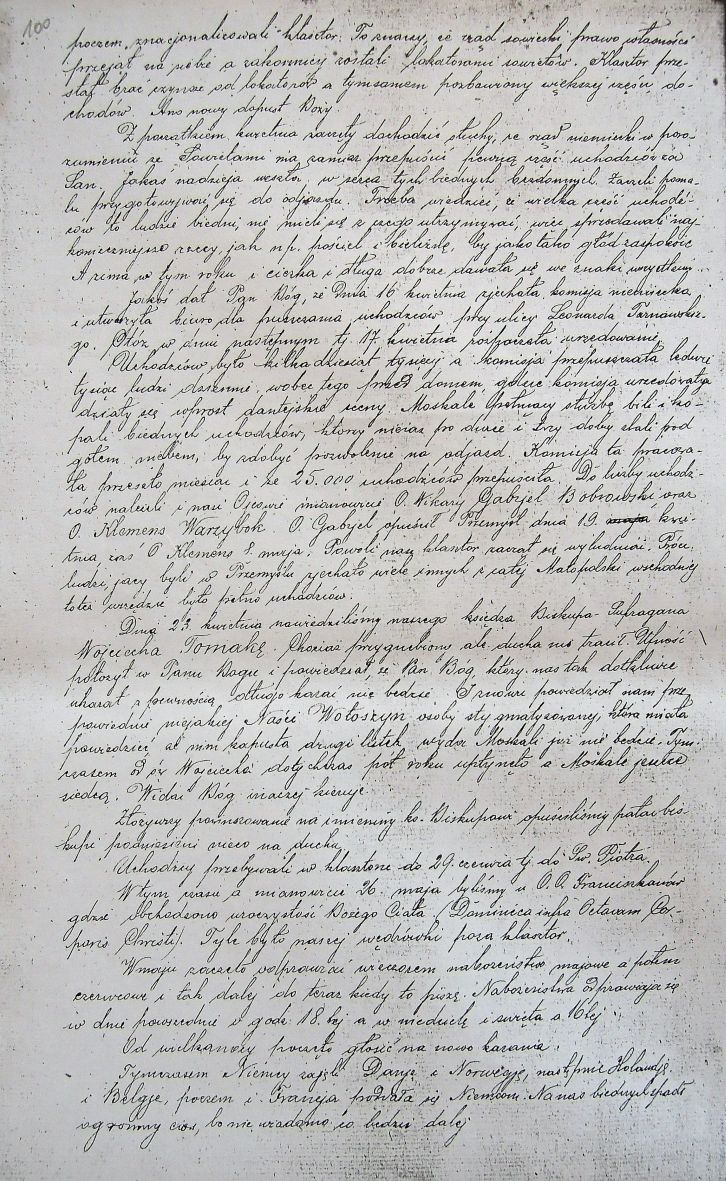 100
poczem znacjonalizowali klasztor. To znaczy, że rząd sowiecki prawo własności
przejął na siebie a zakonnicy zostali lokatorami sowietów. Klasztor prze-
stał brać czynsze od lokatorów a tymsamem pozbawiony większej części do-
chodów. Ano nowy dopust Boży.
Z początkiem kwietnia zaczęły dochodzić słuchy, że rząd niemiecki w poro-
zumieniu ze Sowietami ma zamiar przepuścić pewną część uchodźców za
San. Jakaś nadzieja weszła w serca tych biednych bezdomnych. Zaczęli poma-
łu przygotowywać się do odjazdu. Trzeba wiedzieć, że wielka część uchodź-
ców to ludzie biedni, nie mieli się z czego utrzymywać, więc sprzedawali naj
konieczniejsze rzeczy, jak np. pościel i bieliznę, by jako tako głód zaspokoić
A zima w tym roku i ciężka i długa dobrze dawała się we znaki wszystkim.
Jakoś dał Pan Bóg, że dnia 16 kwietnia zjechała komisja niemiecka
i utworzyła biuro dla puszczania uchodźców przy ulicy Leonarda Tarnawskie-
go. Otóż w dniu następnym tj. 17. kwietnia rozpoczęła urzędowanie.
Uchodźców było kilkadziesiąt tysięcy a komisja przepuszczała ledwie
tysiąc ludzi dziennie, wobec tego przed domem, gdzie komisja urzędowała
działy się wprost dantejskie sceny. Moskale pełniący służbę bili i ko-
pali biednych uchodźców, którzy nieraz po dwie i trzy doby stali pod
gołem niebem, by zdobyć pozwolenie na odjazd. Komisja ta praco-
ła przeszło miesiąc i ze 25.000 uchodźców przepuściła. Do liczby uchodź-
ców należeli i nasi Ojcowie mianowicie O. Wikary Gabryel Bobrowski oraz
O. Klemens Warzybok. O. Gabryel opuścił Przemyśl dnia 19. maja kwie-
tnia zaś O Klemens 8. maja. Powoli nasz klasztor zaczął się wyludniać. Prócz
ludzi, jacy byli w Przemyślu zjechało wiele innych z całej Małopolski wschodniej
toteż wszędzie było pełno uchodźców.
Dnia 23. kwietnia nawiedziliśmy naszego księdza Biskupa-Sufragana
Wojciecha Tomakę. Chociaż przygnębiony ale ducha nie tracił. Ufność
położył w Panu Bogu i powiedział, że Pan Bóg, który nas tak dotkliwie
ukarał z pewnością długo karać nie będzie. I znowu powiedział nam prze
powiednie niejakiej Naści Wołoszyn osoby stygmatyzowanej, która miała
powiedzieć, że nim kapusta drugi listek wyda Moskali już nie będzie. Tym-
czasem od św Wojciecha dotychczas pół roku upłynęło a Moskale jeszcze
siedzą. Widać Bóg inaczej kieruje.
Złożywszy powinszowanie na imieniny ks. Biskupowi opuściliśmy pałac bis-
kupi podniesieni nieco na duchu.
Uchodźcy przebywali w klasztorze do 29. czerwca tj. do Św. Piotra.
W tym czasie a mianowicie 26. maja byliśmy u O.O. Franciszkanów
gdzie obchodzono uroczystość Bożego Ciała. (Dominica infra Octavam Cor-
poris Christi). Tyle było naszej wędrówki poza klasztor.
W maju zaczęto odprawiać wieczorem nabożeństwo majowe a potem
czerwcowe i tak dalej do teraz kiedy to piszę. Nabożeństwa odprawiają się
w dnie powszednie o godz. 18.tej a w niedzielę i święta o 16tej.
Od wielkanocy poczęto głosić na nowo kazania.
Tymczasem Niemcy zajęli Danję i Norwegję, następnie Holandję
i Belgję, poczem i Francja poddała się Niemcom. Na nas biednych spadł
ogromny cios, bo nie wiadomo co będzie dalej